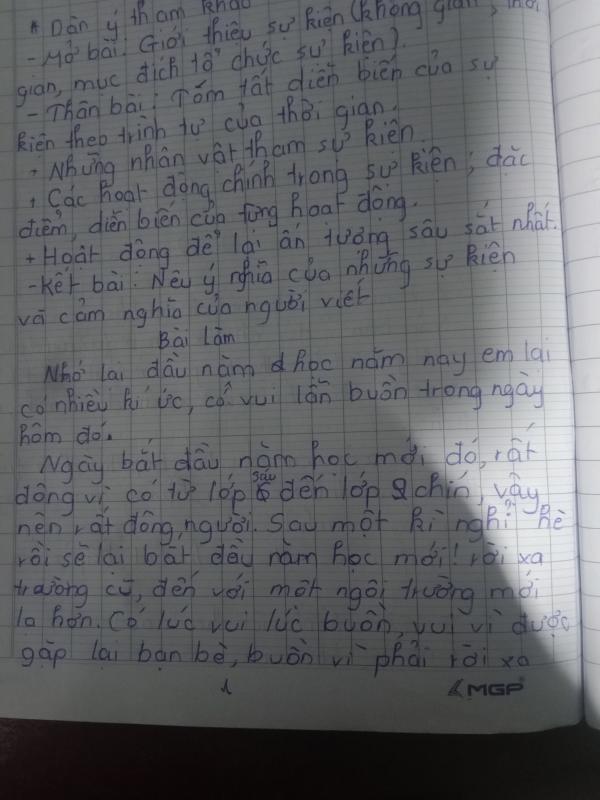 * Dàn ý tham khảo
- Mở bài: Giới thiệu sự kiện (không gian, thời
gian, mục đích tổ chức sự kiện).
- Thân bài: Tóm tắt diễn biến của sự
kiện theo trình tự của thời gian.
+ Những nhân vật tham sự kiện.
+ Các hoạt động chính trong sự kiện; đặc
điểm, diễn biến của từng hoạt động.
+ Hoạt động để lại ấn tượng sâu sắt nhất.
- Kết bài: Nêu ý nghĩa của những sự kiện
và cảm nghĩa của người viết
Bài làm
Nhớ lại đầu năm học năm nay em lại
có nhiều kí ức, có vui lẫn buồn trong ngày
hôm đó.
Ngày bắt đầu năm học mới đó, rất
đông vì có từ lớp sáu đến lớp chín, vậy
nên rất đông người. Sau một kì nghỉ hè
rồi sẽ lại bắt đầu năm học mới! rời xa
trường cũ, đến với một ngôi trường mới
lạ hơn. Có lúc vui lúc buồn, vui vì được
gặp lại bạn bè, buồn vì phải rời xa
1
MGP